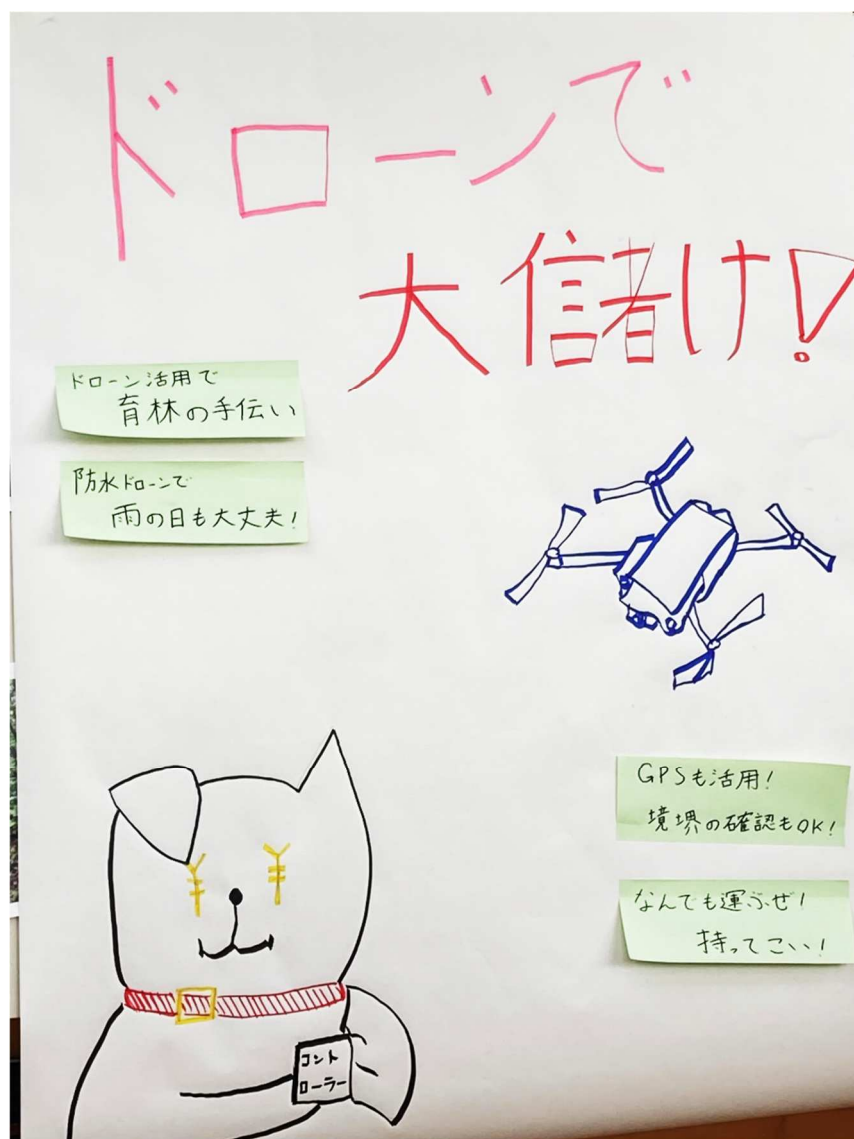 ドローンで
大儲け!
ドローン活用で
育林の手伝い
防水ドローンで
雨の日も大丈夫!
GPSも活用!
境界の確認もOK!
なんでも運ぶぜ!
持ってこい!
¥ ¥
コント
ローラー